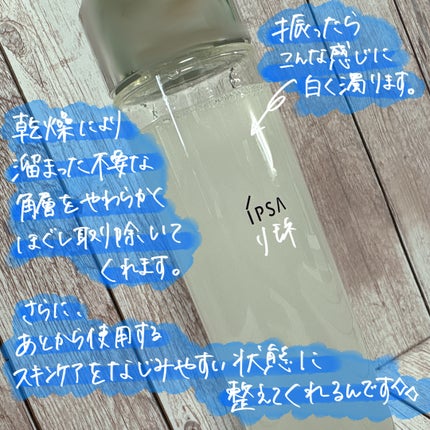 振ったら
こんな感じに
白く濁ります。
乾燥により
溜まった不要な
角層をやわらかく
ほぐし取り除いて
くれます。
ipsa
さらに、
あとから使用する
スキンケアをなじみやすい状態に
整えてくれるんです◇◇